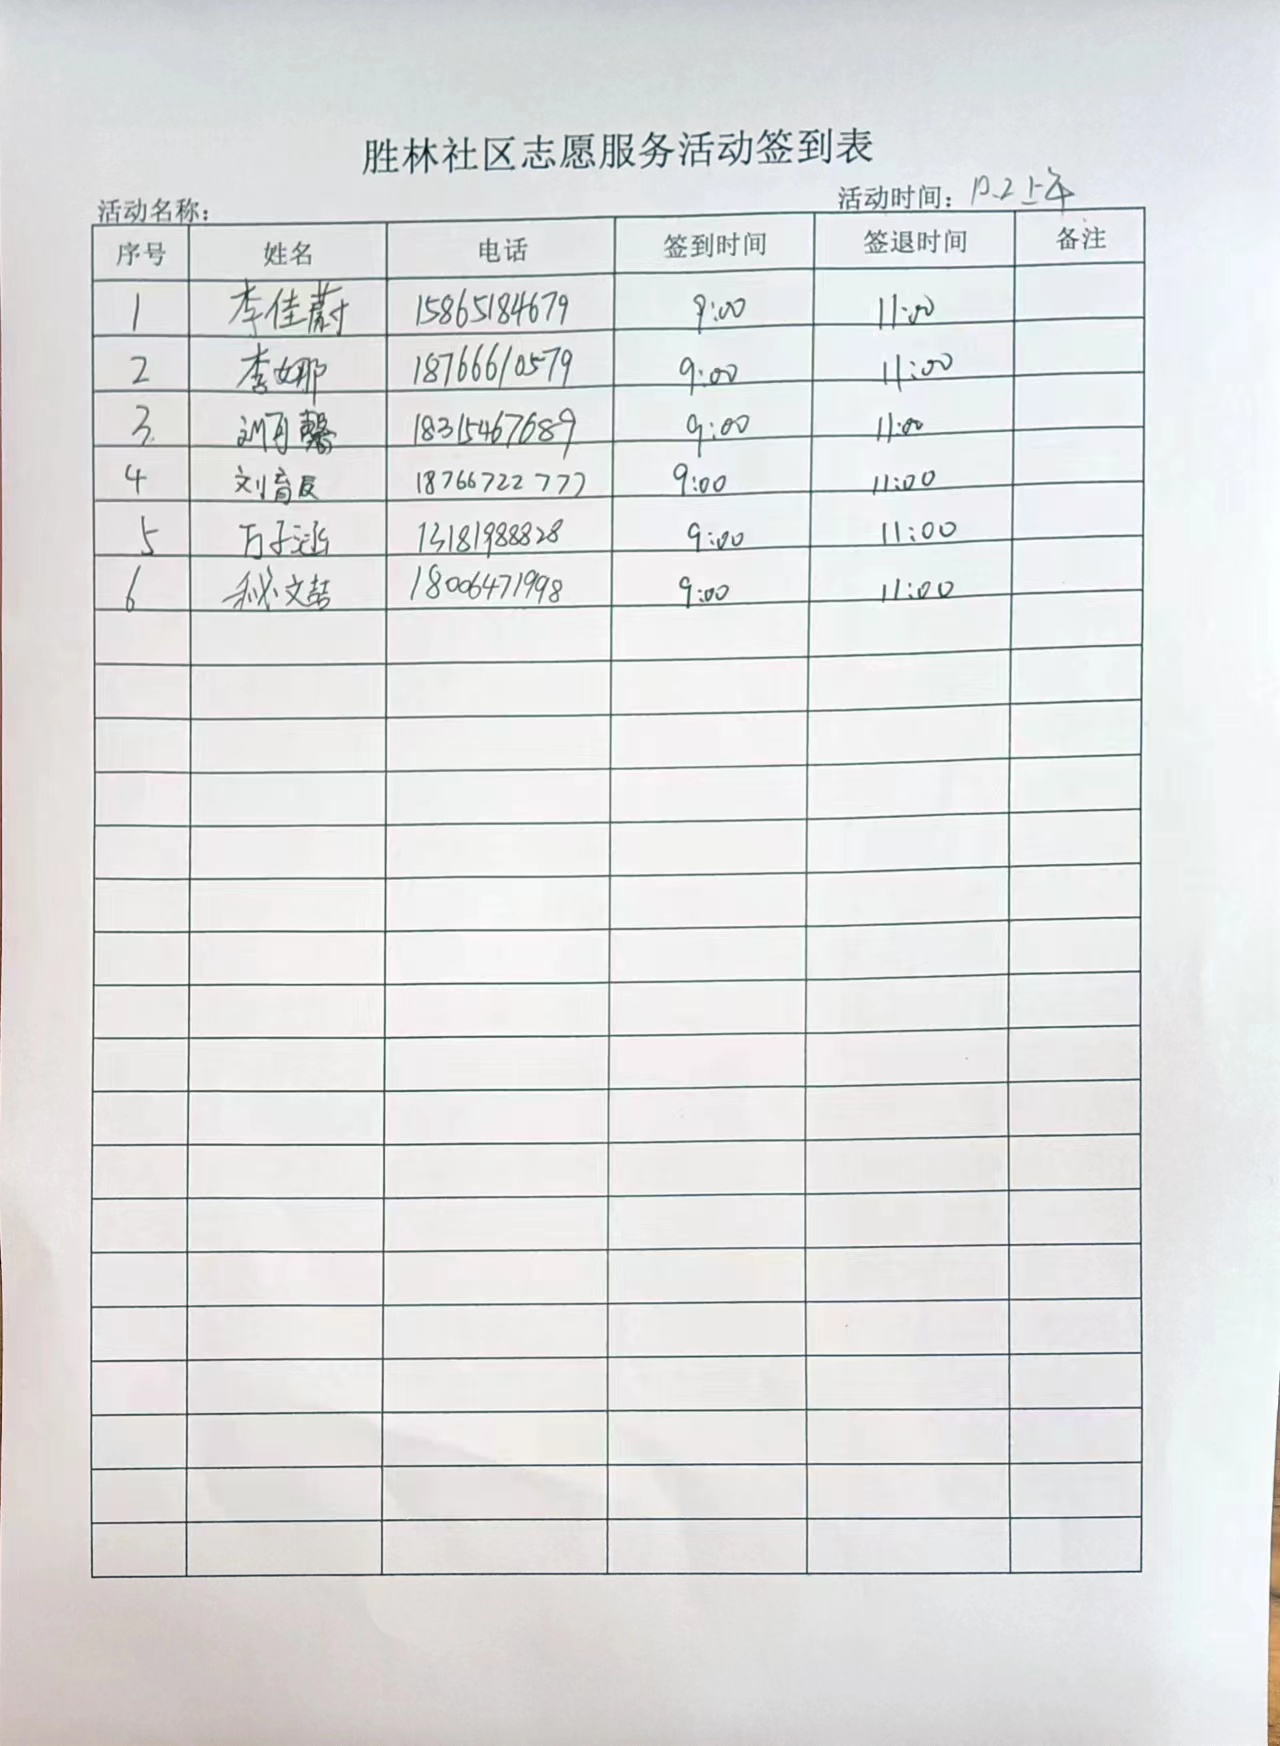 胜林社区志愿服务活动签到表
活动名称： 活动时间：12.2上午
序号 姓名 电话 签到时间 签退时间 备注
1 李佳蔚 15865184679 9:00 11:00
2 李娜 18766610579 9:00 11:00
3. 刘 馨 18315467689 9:00 11:00
4 刘育辰 18766722777 9:00 11:00
5 万子涵 13181988828 9:00 11:00
6 秘文喆 18006471998 9:00 11:00